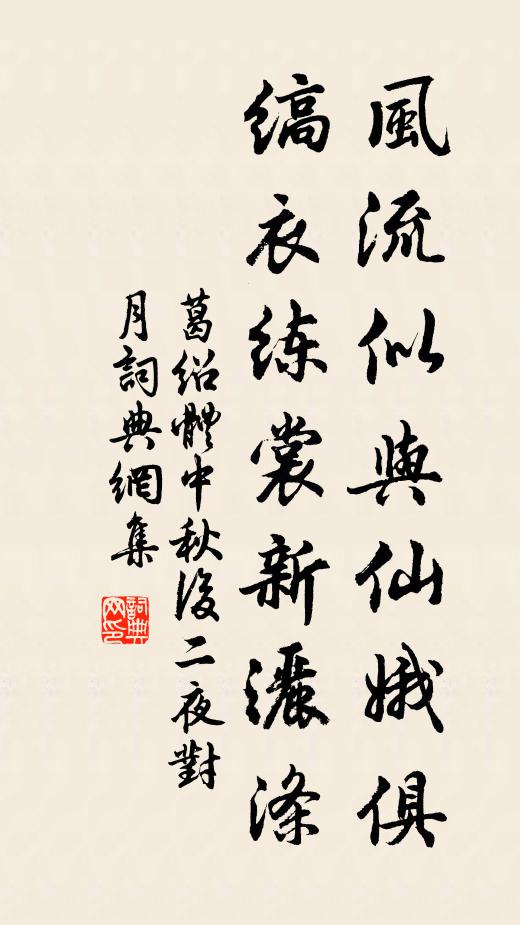 風流似與仙娥俱
縞衣练裳新灑滌
葛绍體中秋後二夜對
月詞典網集
詞典网印